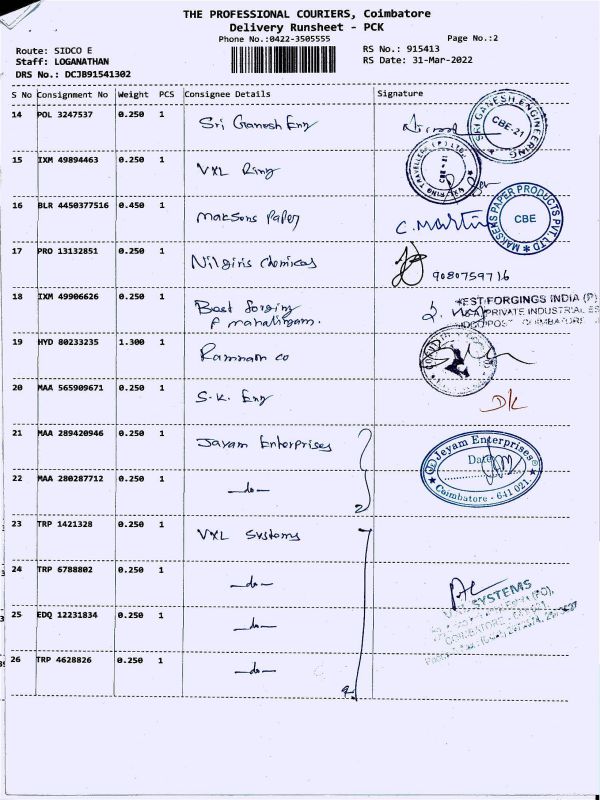 THE PROFESSIONAL COURIERS, Coimbatore
Delivery Runsheet - PCK
Phone No.:0422-3505555 Page No.:2
Route: SIDCO E RS No.: 915413
Staff: LOGANATHAN RS Date: 31-Mar-2022
DRS No.: DCJB91541302
S No Consignment No Weight PCS Consignee Details Signature
14 POL 3247537 0.250 1 Sri Ganesh Eng SRI GANESH ENGINEERING CBE-21
15 IXM 49894463 0.250 1 VXL Ring CBE-21
16 BLR 4450377516 0.450 1 Maksons Paper C. Martin MAKSENS PAPER PRODUCTS PVT. LTD CBE
17 PRO 13132851 0.250 1 Nilgiris Chemicas 9080759716
18 IXM 49906626 0.250 1 Best forging EST FORGINGS INDIA (P)
P mahalingam. PRIVATE INDUSTRIAL ES
19 HYD 80233235 1.300 1 Ramnam co
20 MAA 565909671 0.250 1 S.K. Eng DK
21 MAA 289420946 0.250 1 Jayam Enterprises Jeyam Enterprises Date
22 MAA 280287712 0.250 1 —do— 2 Coimbatore - 641 021.
23 TRP 1421328 0.250 1 VXL Systems
24 TRP 6788802 0.250 1 —do— SYSTEMS
25 EDQ 12231834 0.250 1 —do— COIMBATORE
26 TRP 4628826 0.250 1 —do— 4